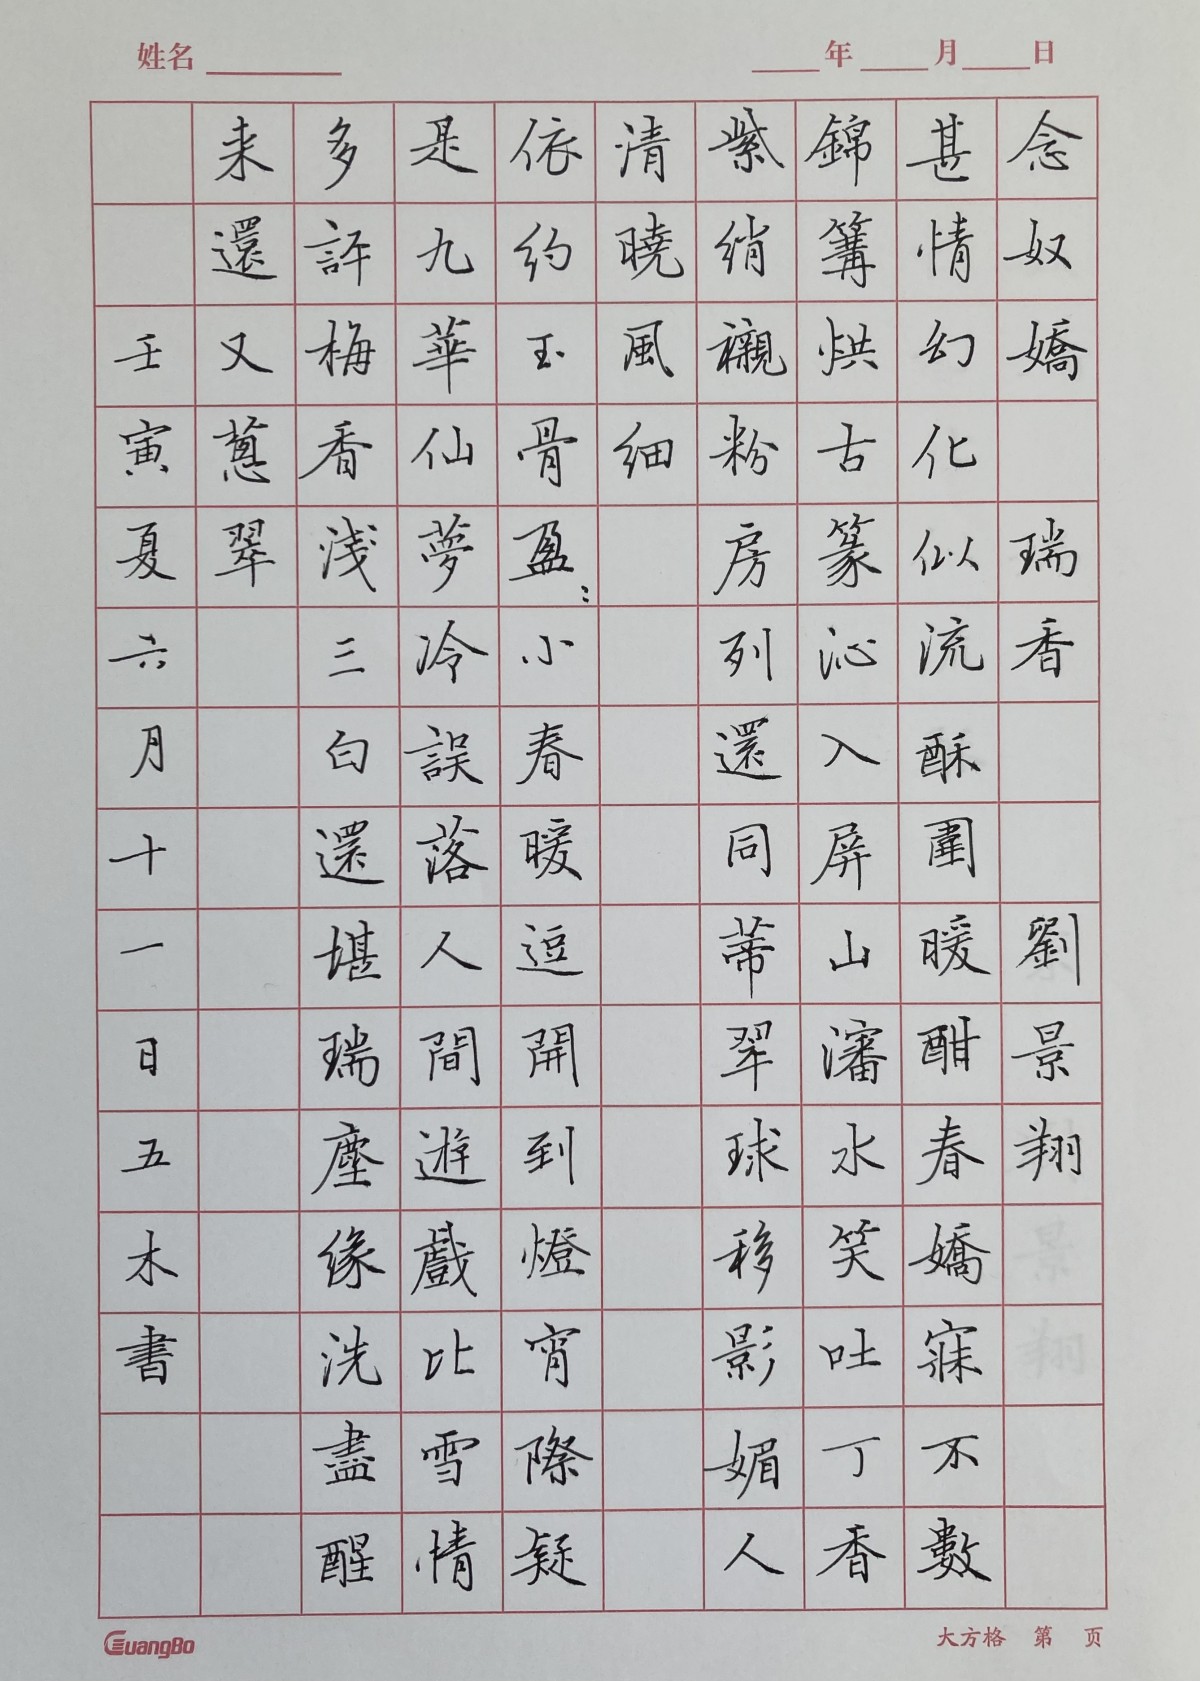 姓名 年 月 日
念奴嬌 瑞香 劉景翔
甚情幻化似流酥圍暖酣春嬌寐不數
錦篝烘古篆沁入屏山瀋水笑吐丁香
紫綃襯粉房列還同蒂翠球移影媚人
清曉風細
依約玉骨盈〻小春暖逗開到燈宵際疑
是九華仙夢冷誤落人間遊戲比雪情
多評梅香淺三白還堪瑞塵緣洗盡醒
来還又蔥翠
壬寅夏六月十一日五木書
GuangBo
大方格 第 页